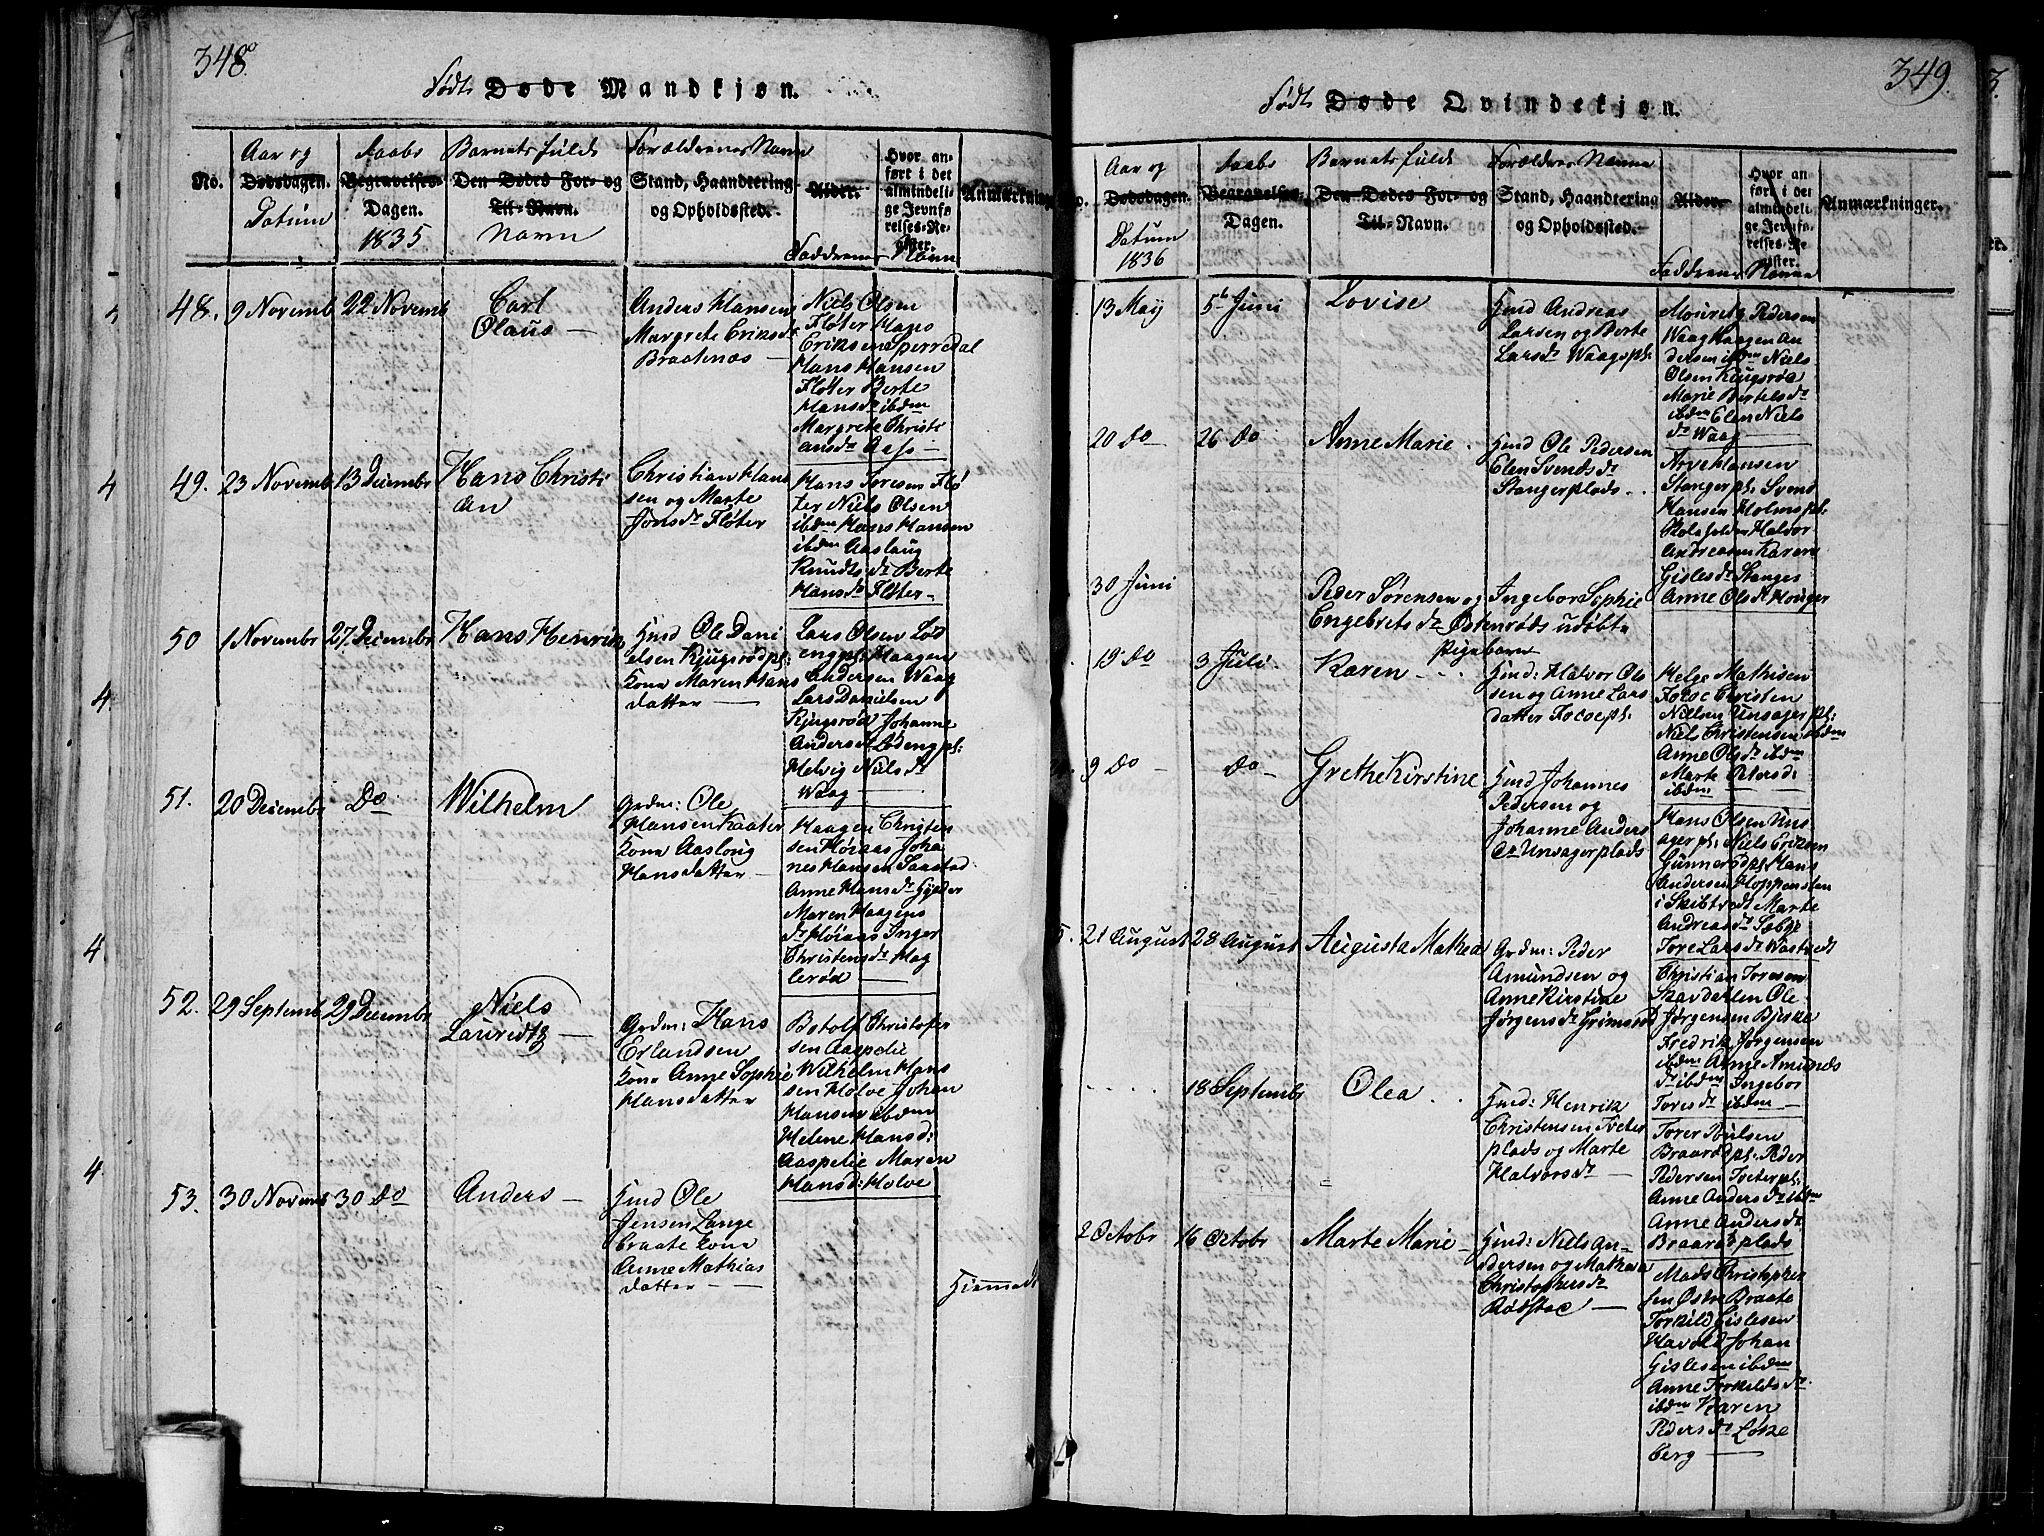 348.
Født Døde Mandkjøn.
No.
Aar og
Dødsdagen.
Datum
Daabs
Begravelses-
Dagen.
1835
Barnets fulde
Den Dødes For- og
Til-Navn.
Navn
Forældrenes Navn
Stand, Haandtering
og Opholdssted.
Alder.
Faddrenes Navn
Hvor an-
ført i det
almindeli-
ge Jevnfø-
relses-Re-
gister.
Anmærkning
48.
9 Novemb
22 Novemb
Carl
Olaus —
Anders Hansen
Margrete Eriksdr
Braatnæs —
Niels Olsen
Fløter Hans
Eriksen Sperredal
Hans Hansen
Fløter Berte
Hansdr ibdm
Margrete Christi
ansdr Aass —
49.
23 Novemb
13 Decembr
Hans Christi
an
Christian Hans
sen og Marte
Jonsdr Fløter
Hans Toresen Flø
ter Niels Olsen
ibdm Hans Hansen
ibdm Aaslaug
Knudtsdr Berte
Hansdr Fløter —
50
1 Novembr
27 Decembr
Hans Henrik
Huusd Ole Dani
elsen Kjugsrødpl:
Kone Maren Hans
datter —
Lars Olsen Lød
engpl: Haagen
Andersen Waag
Lars Danielsen
Kjugsrød Johanne
Andersdr Lødengpl:
Helvig Nielsdr
Waag —
51.
20 Decembr
Do
Wilhelm
Grdm: Ole
Hansen Kaater
Kone Aasloug
Hansdatter —
Haagen Christen
sen Høiaas Joha
nes Hansen Saastad
Anne Hansdr Gylder
Maren Haagens
dr Høiaas Inger
Christensdr Hag
lerød —
52.
29 Septemb
29 Decembr
Niels
Lauridtz —
Grdm: Hans
Erlandsen
Kone Anne Sophie
Hansdatter
Botolf Christofer
sen Aaspelie
Wilhelm Hans
sen Holve Johan
Hansen ibdm
Helene Hansd:
Aaspelie Maren
Hansd: Holve
53.
30 Novemb
30 Do
Anders —
Huusd Ole
Jensen Lange
braate Kone
Anne Mathias
datter —
Hiemmedt
4
4
4
4
349.
Født Døde Qvindekjøn.
Aar og
Dødsdagen.
Datum
1836
Daabs
Begravelses-
Dagen.
Barnets fulde
Den Dødes For- og
Til-Navn.
Forældrenes Navne
Stand, Haandtering
og Opholdssted.
Alder.
Faddrenes Navne
Hvor an-
ført i det
almindeli-
ge Jevnfø-
relses-Re-
gister.
Anmærkninger.
13 May
5te Juni
Lovise
Huusd Andreas
Larsen og Berte
Larsdr Waagspl:
Mouretz Pedersen
Waag Haagen An
dersen ibdm Niels
Olsen Kjugsrød
Marie Bertelsdr
ibdm Elen Niels
dr Waag —
20 Do
26 Do
Anne Marie.
Huusd Ole Pedersen
Elen Svendsdr
Stangerplads.
Arve Hansen
Stangerpl: Svend
Hansen Holmspl:
Skoleholder Halvor
Andreasen Karen
Gislesdr Stanger
Anne Olsdr Houger
30 Juni
Peder Sørensen og Ingebor Sophie
Engebretsdr Østenrøds udøbte
Pigebarn
19 Do
3 Juli
Karen
Huusd: Halvor Ols
sen og Anne Lars
datter Focoepl:
Helge Mathisen
Focoe Christen
Nielsen Unsagerpl:
Niels Christensen ibdm
Anne Olsdr ibdm
Marte Petersd:
ibdm
9 Do
Do
Grethe Kirstine
Huusd Johannes
Pedersen og
Johanne Anders
dr Unsagerplads
Hans Olsen Uns
agerpl: Niels Eriksen
Gunnersødpl: Hans
Andersen Hoppensten
i Skibtvedt Marte
Andreasdr Sæbye
Tore Larsdr Wastvedt
21 August
28 August
Augusta Mathea
Grdm: Peder
Amundsen og
Anne Kirstine
Jørgensdr Grimsrød
Christian Toresen
Skavdallen Ole
Jørgensen Bjerke
Fredrik Jørgensen
ibdm Anne Amunds
dr ibdm Ingebor
Toresdr ibdm —
18 Septembr
Olea
Huusd: Henrik
Christensen Tveter
plads og Marte
Halvorsdr
Torer Poulsen
Braarødpl: Peder
Pedersen Tveterpl:
Anne Andersdr ibdm
Anne Andersdr
Braarødplads
2 Octobr
16 Octobr
Marte Marie —
Huusd: Niels An
dersen og Mathea
Christophersdr
Rødstoe —
Mads Christopher
sen Østre Braate
Torkild Gislesen
Havold Johan
Gislesen ibdm
Anne Torkildsdr
ibdm Karen
Pedersdr Løkke
berg —